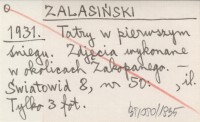 ZALASIŃSKI
1931. Tatry w pierwszym
śniegu. Zdjęcia wykonane
w okolicach Zakopanego. –
Światowid 8, nr 50: , il.
Tylko 3 fot.